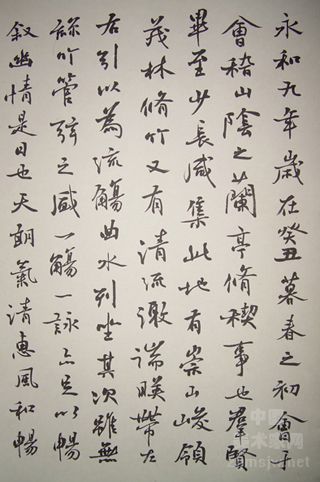 永和九年歲在癸丑暮春之初會于
會稽山陰之蘭亭脩禊事也羣賢
畢至少長咸集此地有崇山峻領
茂林脩竹又有清流激湍暎帶左
右引以為流觴曲水列坐其次雖無
絲竹管弦之盛一觴一詠亦足以暢
叙幽情是日也天朗氣清惠風和暢